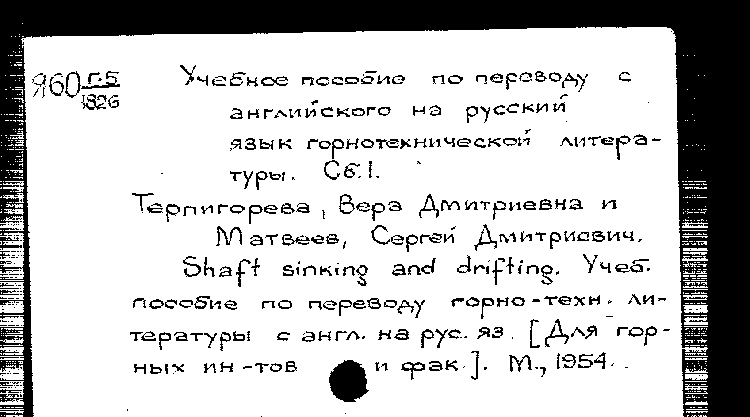 Я60 Г.5
1826
Учебное пособие по переводу с
английского на русский
язык горнотехнической литера-
туры. Сб.1.
Терпигорева, Вера Дмитриевна и
Матвеев, Сергей Дмитриевич.
Shaft sinking and drifting. Учеб.
пособие по переводу горно-техн. ли-
тературы с англ. на рус. яз. [Для гор-
ных ин-тов и фак.]. М., 1954.